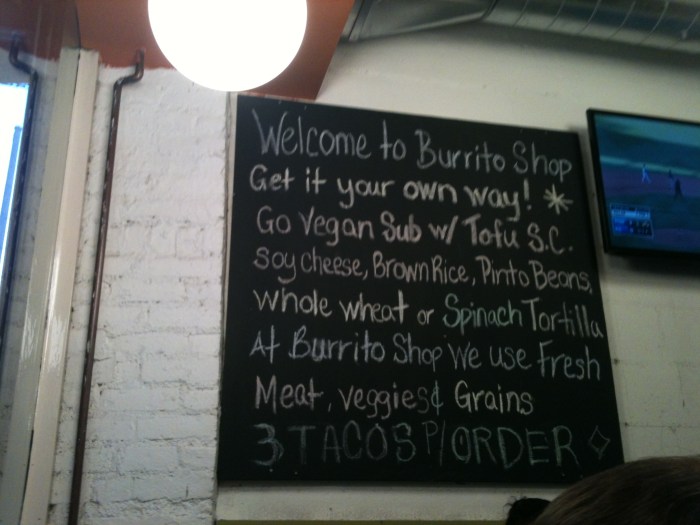 Welcome to Burrito Shop
Get it your own way! *
Go Vegan Sub w/ Tofu S.C.
Soy cheese, Brown Rice, Pinto Beans,
whole wheat or Spinach Tortilla
At Burrito Shop We use Fresh
Meat, veggies & Grains
3 TACOS P/ORDER ◇